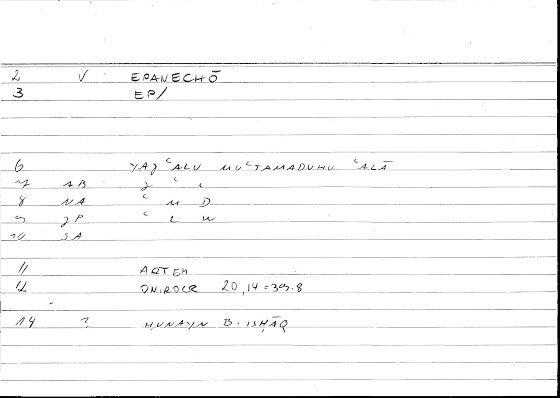 2 V EPANECHŌ
3 EP/
6 YAǦʿALU MUʿTAMADUHU ʿALĀ
7 AB ǧ ʿ L
8 NA ʿ M D
9 JP ʿ L W
10 SA
11 ARTEM
12 ONIROCR 20,14=39.8
14 ? ḤUNAYN B. ISḤĀQ